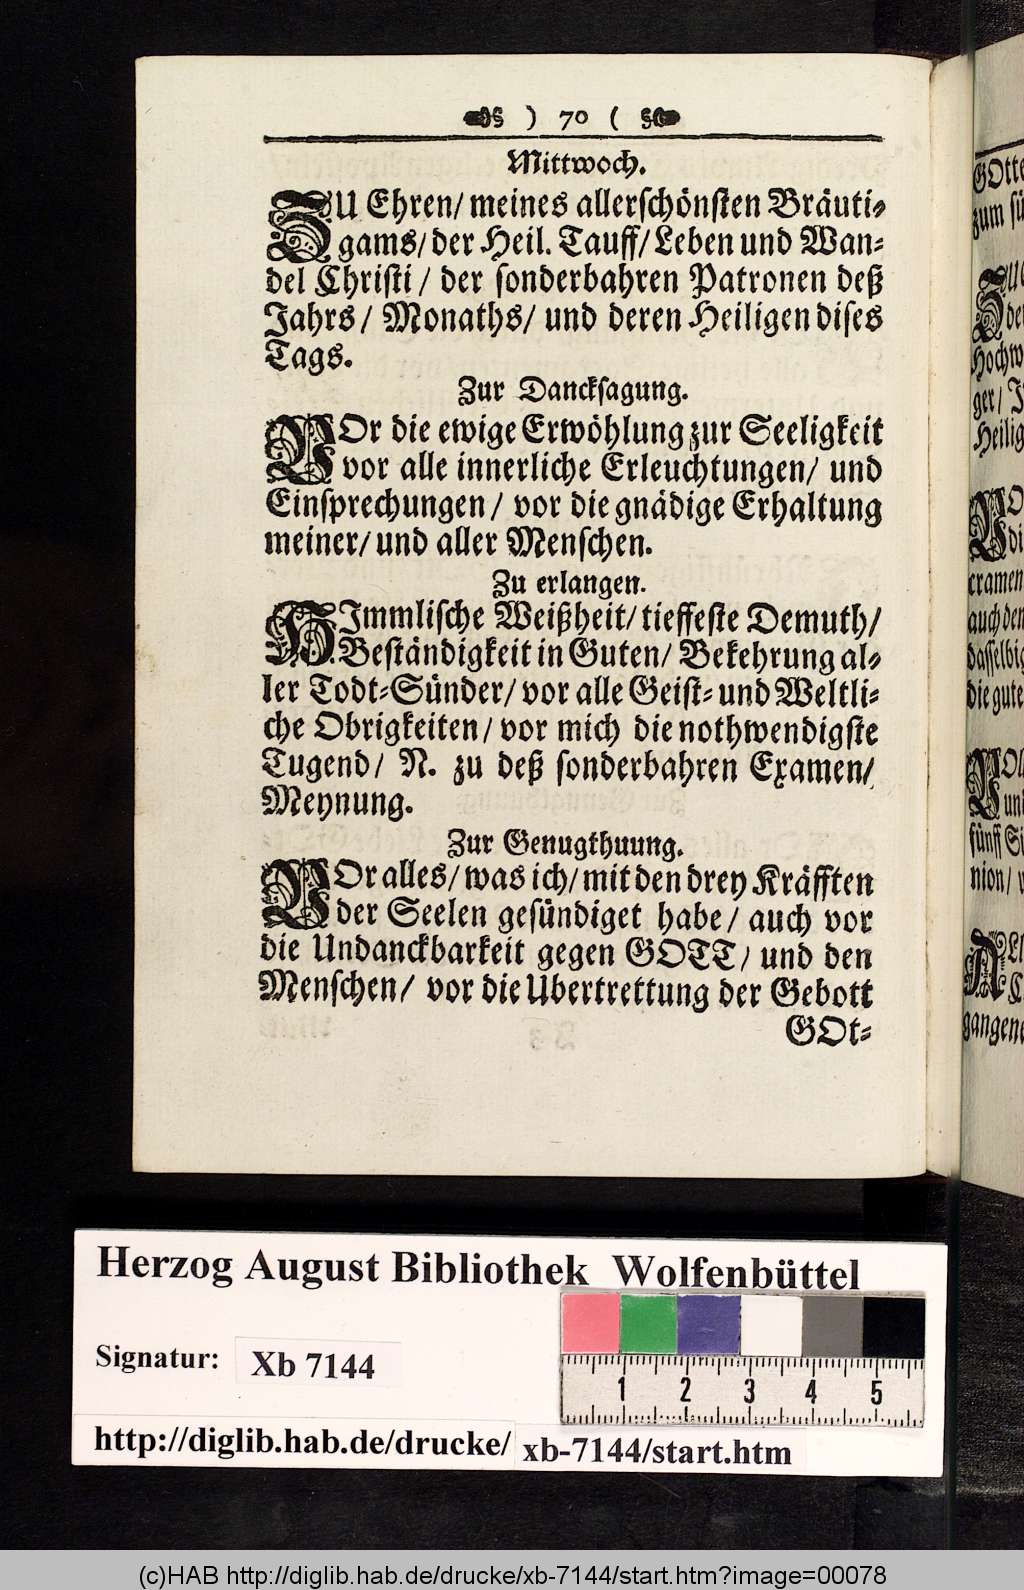 ) 70 (
Mittwoch.
ZU Ehren/ meines allerschönsten Bräuti-
gams/ der Heil. Tauff/ Leben und Wan-
del Christi / der sonderbahren Patronen deß
Jahrs/ Monaths/ und deren Heiligen dises
Tags.
Zur Dancksagung.
VOr die ewige Erwöhlung zur Seeligkeit
vor alle innerliche Erleuchtungen/ und
Einsprechungen / vor die gnädige Erhaltung
meiner/ und aller Menschen.
Zu erlangen.
HImmlische Weißheit/ tieffeste Demuth/
Beständigkeit in Guten/ Bekehrung al-
ler Todt-Sünder/ vor alle Geist- und Weltli-
che Obrigkeiten/ vor mich die nothwendigste
Tugend/ N. zu deß sonderbahren Examen/
Meynung.
Zur Genugthuung.
VOr alles/ was ich/ mit den drey Kräfften
der Seelen gesündiget habe/ auch vor
die Undanckbarkeit gegen GOTT/ und den
Menschen/ vor die Ubertrettung der Gebott
GOt-
GOtte
zum sü
ZU
der
Hochw
ger/ J
Heilig
VO
di
cramen
auch den
dasselbig
die gute
VOn
und
fünff Si
nion/ v
gangene
Herzog August Bibliothek Wolfenbüttel
Signatur: Xb 7144
1 2 3 4 5
http://diglib.hab.de/drucke/ xb-7144/start.htm
(c)HAB http://diglib.hab.de/drucke/xb-7144/start.htm?image=00078